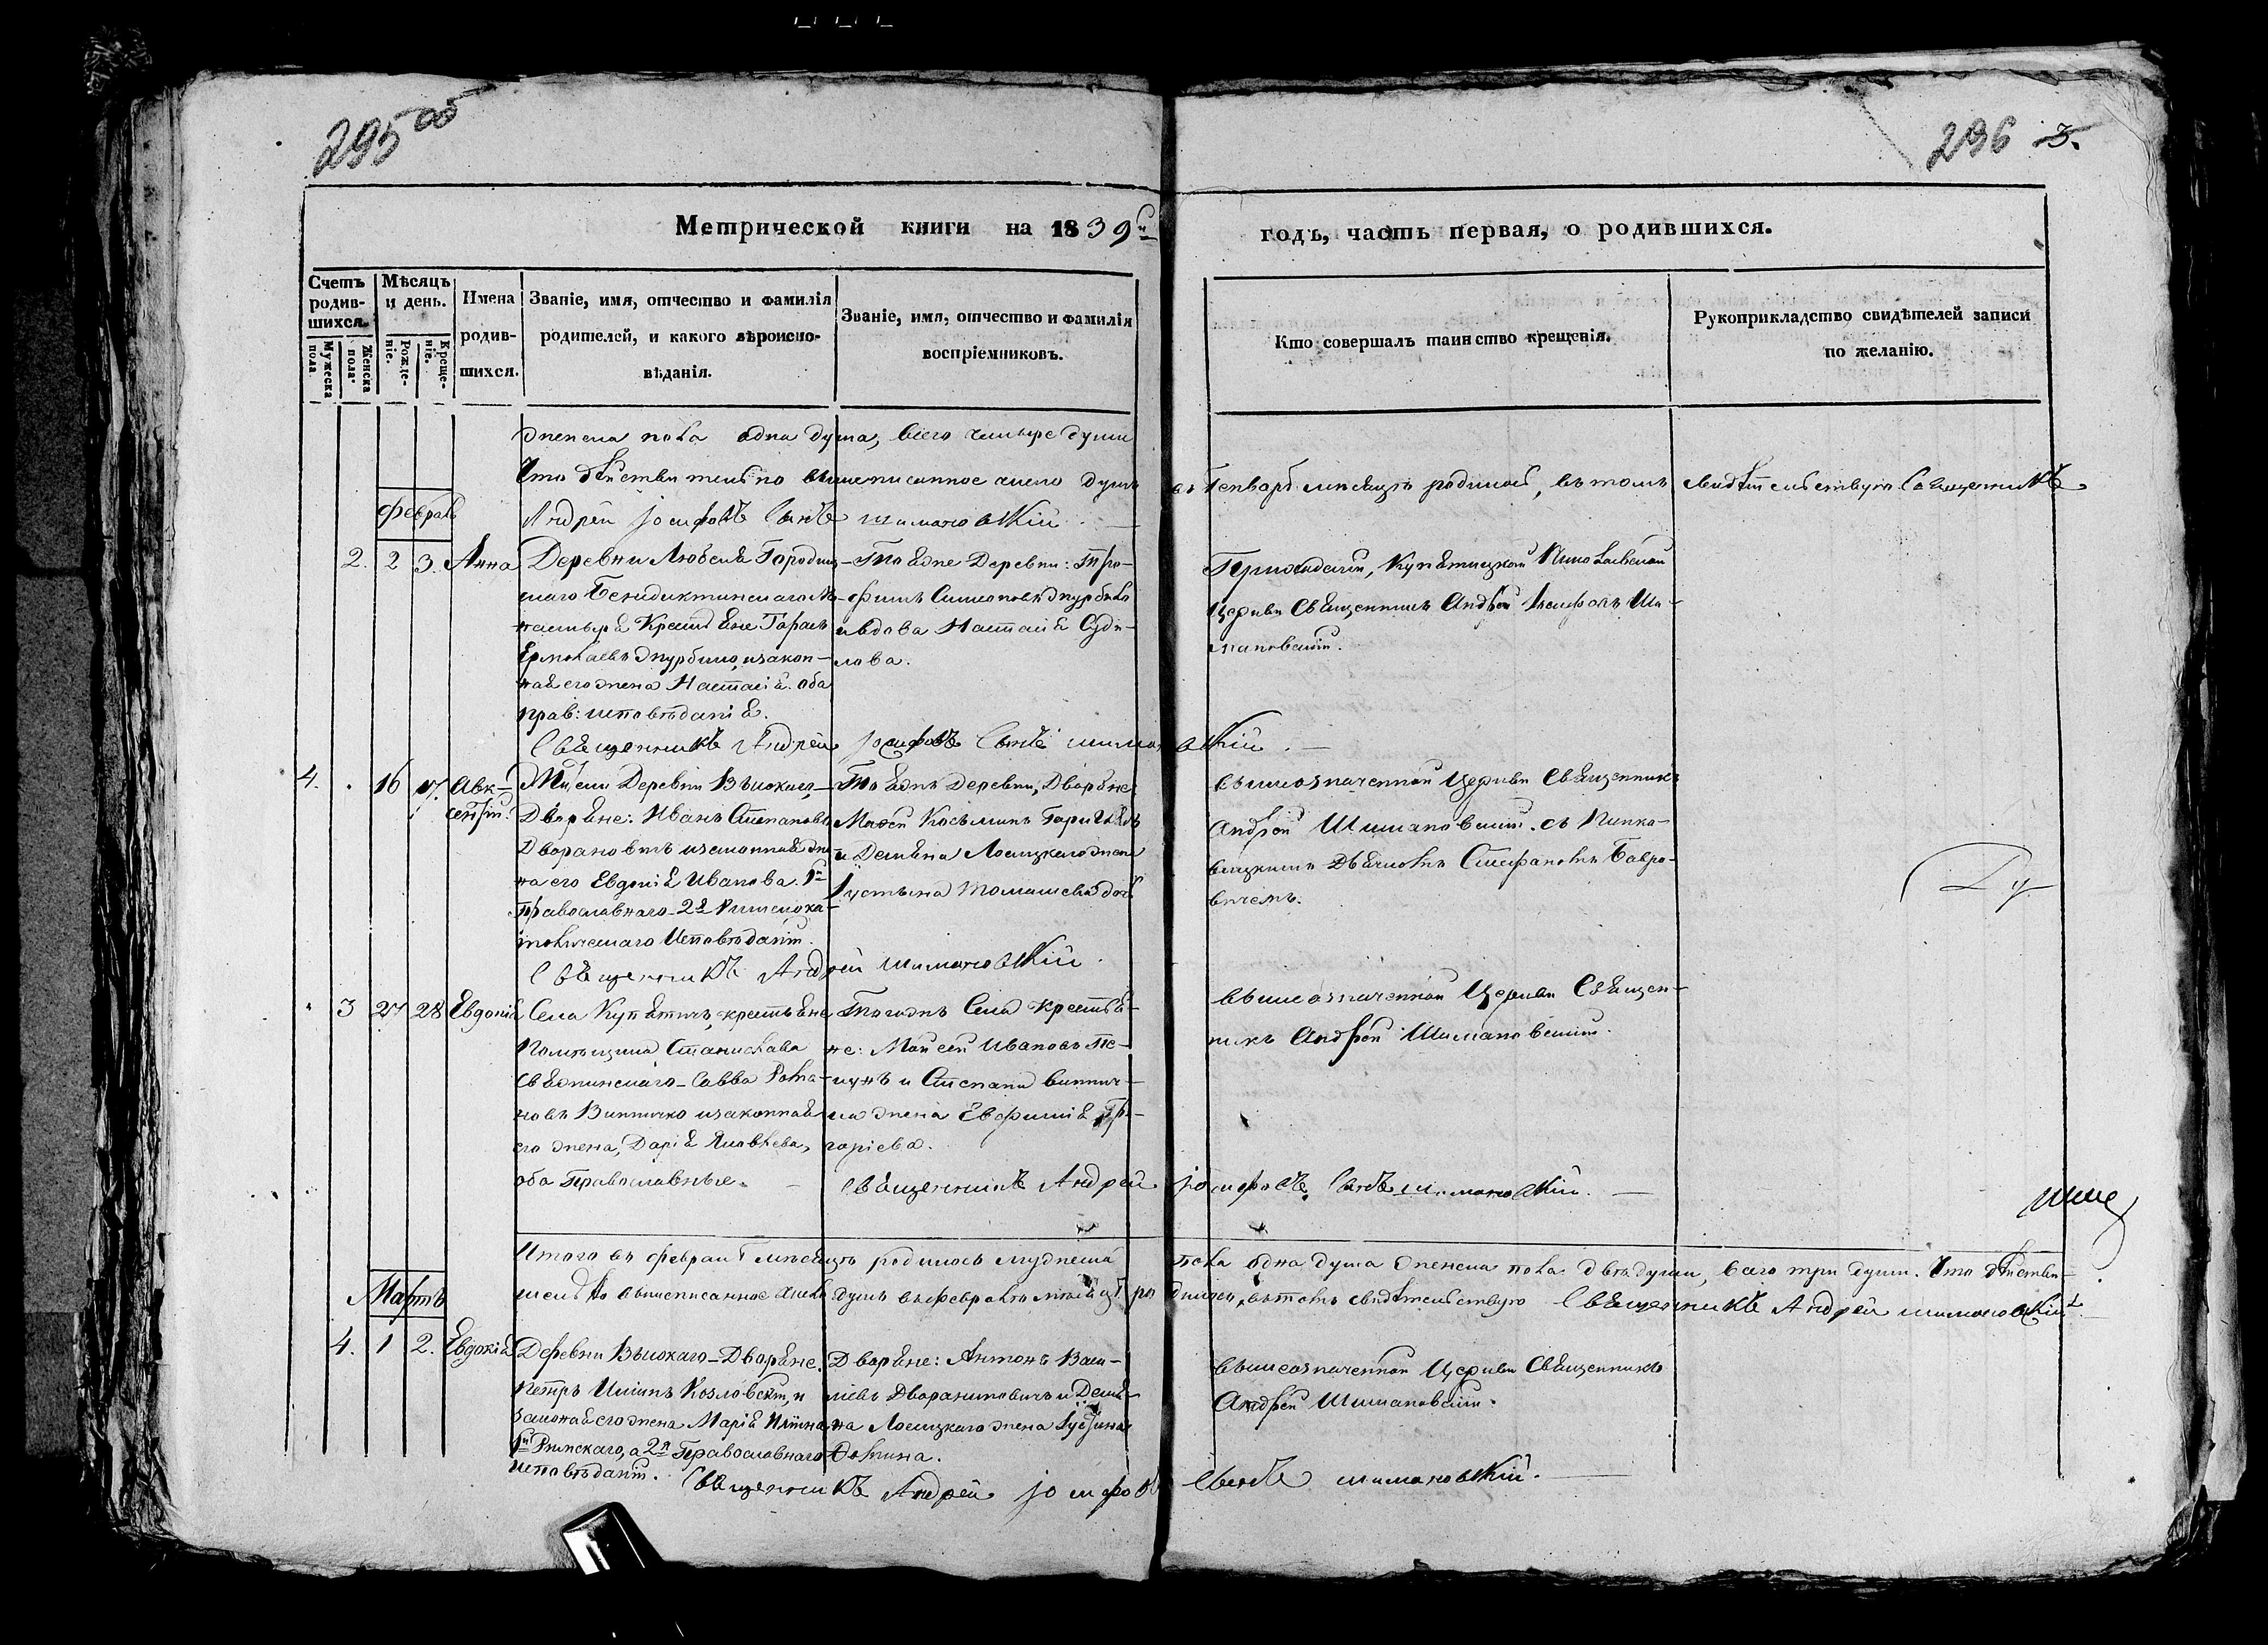 295 об
296 3.
Метрической книги на 1839й годъ, часть первая, о родившихся.
Счетъ родив-шихся.
Мужеска пола.
Женска пола.
Мѣсяцъ и день.
Рожде-ніе.
Креще-ніе.
Имена
родив-
шихся.
Званіе, имя, отчество и фамилія
родителей, и какого вѣроиспо-
вѣданія.
Званіе, имя, отчество и фамилія
воспріемниковъ.
Кто совершалъ таинство крещенія.
Рукоприкладство свидѣтелей записи
по желанію.
женска пола одна душа, всего четыре души
Что дѣйствительно вышеписанное число душъ въ Генварѣ мѣсяцѣ родилось, въ томъ свидѣтельствую Священникъ
Андрей Іосифовъ Сынъ Шимановскій.
Февраль
2. 2 3. Анна
Деревни Любеля Городищ-
скаго Бенидиктинскаго Мо-
настыря Крестьяне Тарасъ
Ермолаевъ Журбило, и закон-
ная его жена Настасія. оба
прав: исповѣданія.
Тояже Деревни: Тро-
фимъ Симеоновъ Журбило
и вдова Настасія Суди-
лова.
Приходской, Купятицкой Николаевской
Церкви Священникъ Андрей Іосифовъ Ши-
мановскій.
Священникъ Андрей Іосифовъ Сынъ Шимановскій.
4. 16 17. Авк-
сентій.
Жители Деревни Высокаго,
Дворяне: Иванъ Степановъ
Дворановичъ и законная же-
на его Евдокія Иванова. 1й
Православнаго 2я Римскока-
толическаго Исповѣданія.
Тояже Деревни, Дворяне
Мойсей Косьминъ Гаричъ
и Демяна Лосицкаго жена
Іустына Томашева дочь
вышеозначенной Церкви Священникъ
Андрей Шимановскій. съ Пинко-
вицкимъ Дьячкомъ Стефаномъ Бавро-
вичемъ.
Священникъ Андрей Шимановскій.
3 27 28 Евдокія
Села Купятичъ, крестьяне
Помѣщика Станислава
Свѣжинскаго Савва Рома-
новъ Винничко и законная
его жена, Дарія Яковлева,
оба Православные.
Тогожъ Села Крестья-
не: Мойсей Ивановъ
и Степана Виннич-
ка жена Евфимія Гри-
горіева.
вышеозначенной Церкви Священ-
никъ Андрей Шимановскій.
Священникъ Андрей Іосифовъ Сынъ Шимановскій.
Итого въ февралѣ мѣсяцѣ родилось мужеска пола одна душа женска пола двѣ души, всего три души. Что дѣйстви-
тельно вышеписанное число душъ въ февралѣ мѣсяцѣ родилось, въ томъ свидѣтельствую Священникъ Андрей Шимановскій.
Мартъ
4. 1 2. Евдокія
Деревни Высокаго Дворяне.
Петръ Козловскій, и
законая его жена Марія
1й Римскаго, а 2я Православнаго
исповѣданія.
Дворяне: Антонъ Васи-
ліевъ Двораниновичъ и Демя-
на Лосицкаго жена Іустина
Фомина.
вышеозначенной Церкви Священникъ
Андрей Шимановскій.
Священникъ Андрей Іосифовъ Сынъ Шимановскій.